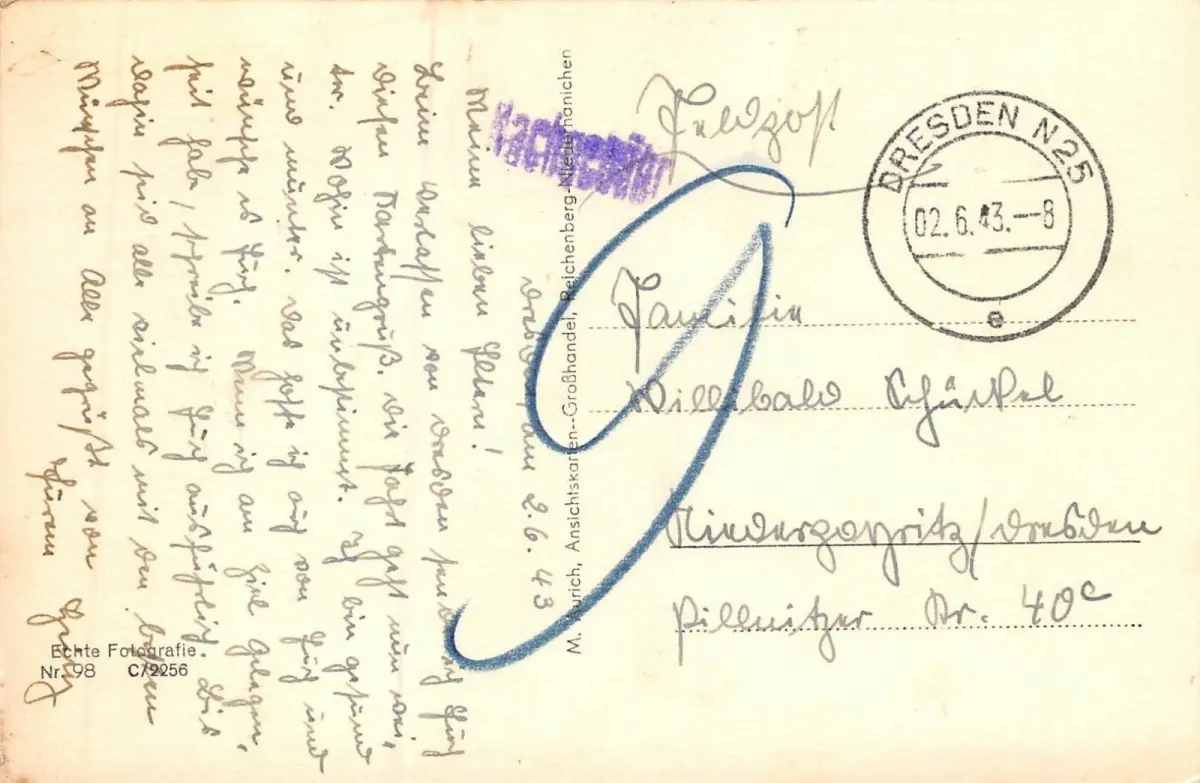 Dresden, am 2.6.43
Meine lieben Eltern!
Beim Verlassen von Dresden sende ich Euch
diesen Kartengruß. Die Fahrt geht nun wei-
ter. Wohin ist unbestimmt. Ich bin gesund
und munter. Das hoffe ich auch von Euch und
wünsche es Euch. Wenn ich am Ziel Gelegen-
heit habe, schreibe ich Euch ausführlich. Bis
dahin seid alle vielmals mit den besten
Wünschen an Alle gegrüßt von
Eurem
Echte Fotografie
Nr. 98 C/2256
M. Aurich, Ansichtskarten-Großhandel, Reichenberg-Niederhanichen
Nachgebühr
Feldpost
DRESDEN N25
02.6.43.--8
e
Familie
Willibald
Niederpoyritz/Dresden
Pillnitzer Str. 40c